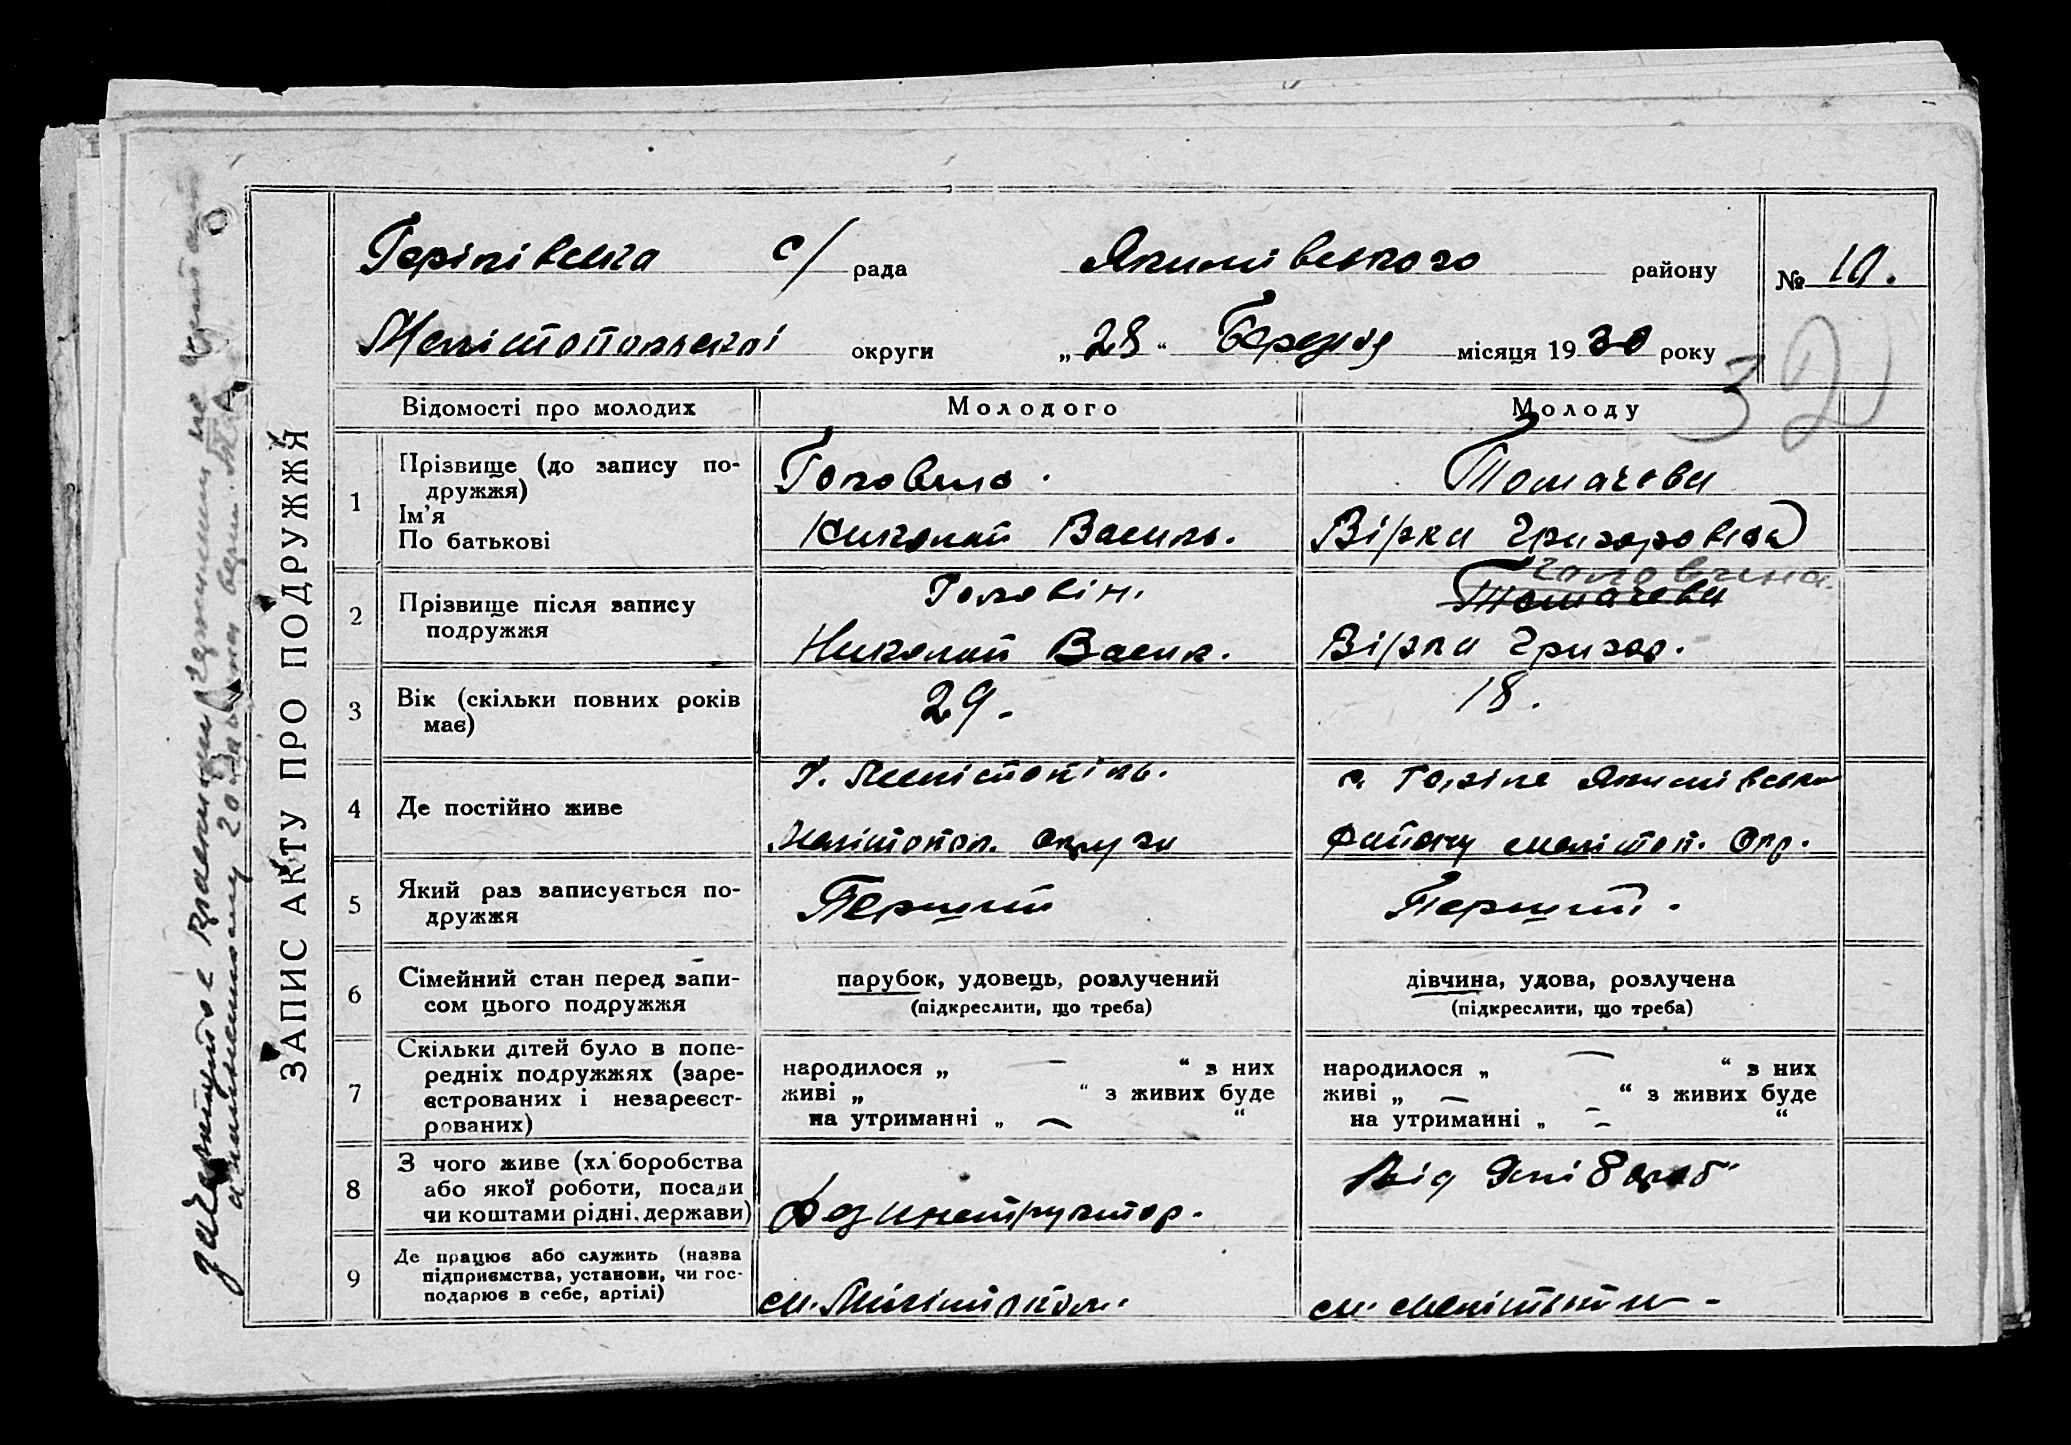 Горіпівська с/ рада Якимівського району № 10.
Мелітопольської округи „28“ Березня місяця 1930 року
32
ЗАПИС АКТУ ПРО ПОДРУЖЖЯ
Відомості про молодих Молодого Молоду
1 Прізвище (до запису подружжя) Головина. Томачева
Ім'я
По батькові Николай Василь. Вірка Григоровна
2 Прізвище після запису подружжя Головін. Томачева Головина
Николай Васил. Вірка Григор.
3 Вік (скільки повних років має) 29. 18.
4 Де постійно живе г. Мелістопіль. с. Якимівська
Мелітопол. округи району Мелітоп. Окр.
5 Який раз записується подружжя Перший Перший.
6 Сімейний стан перед записом цього подружжя парубок, удовець, розлучений дівчина, удова, розлучена
(підкреслити, що треба) (підкреслити, що треба)
7 Скільки дітей було в попередніх подружжях (зареєстрованих і незареєстрованих) народилося „ — “ з них народилося „ — “ з них
живі „ “ з живих буде живі „ — “ з живих буде
на утриманні „ — “ на утриманні „ — “
8 З чого живе (хліборобства або якої роботи, посади чи коштами рідні, держави) інструктор. Від
9 Де працює або служить (назва підприємства, установи, чи господарює в себе, артілі) м. м.
зачеркнутое чернилами не читать